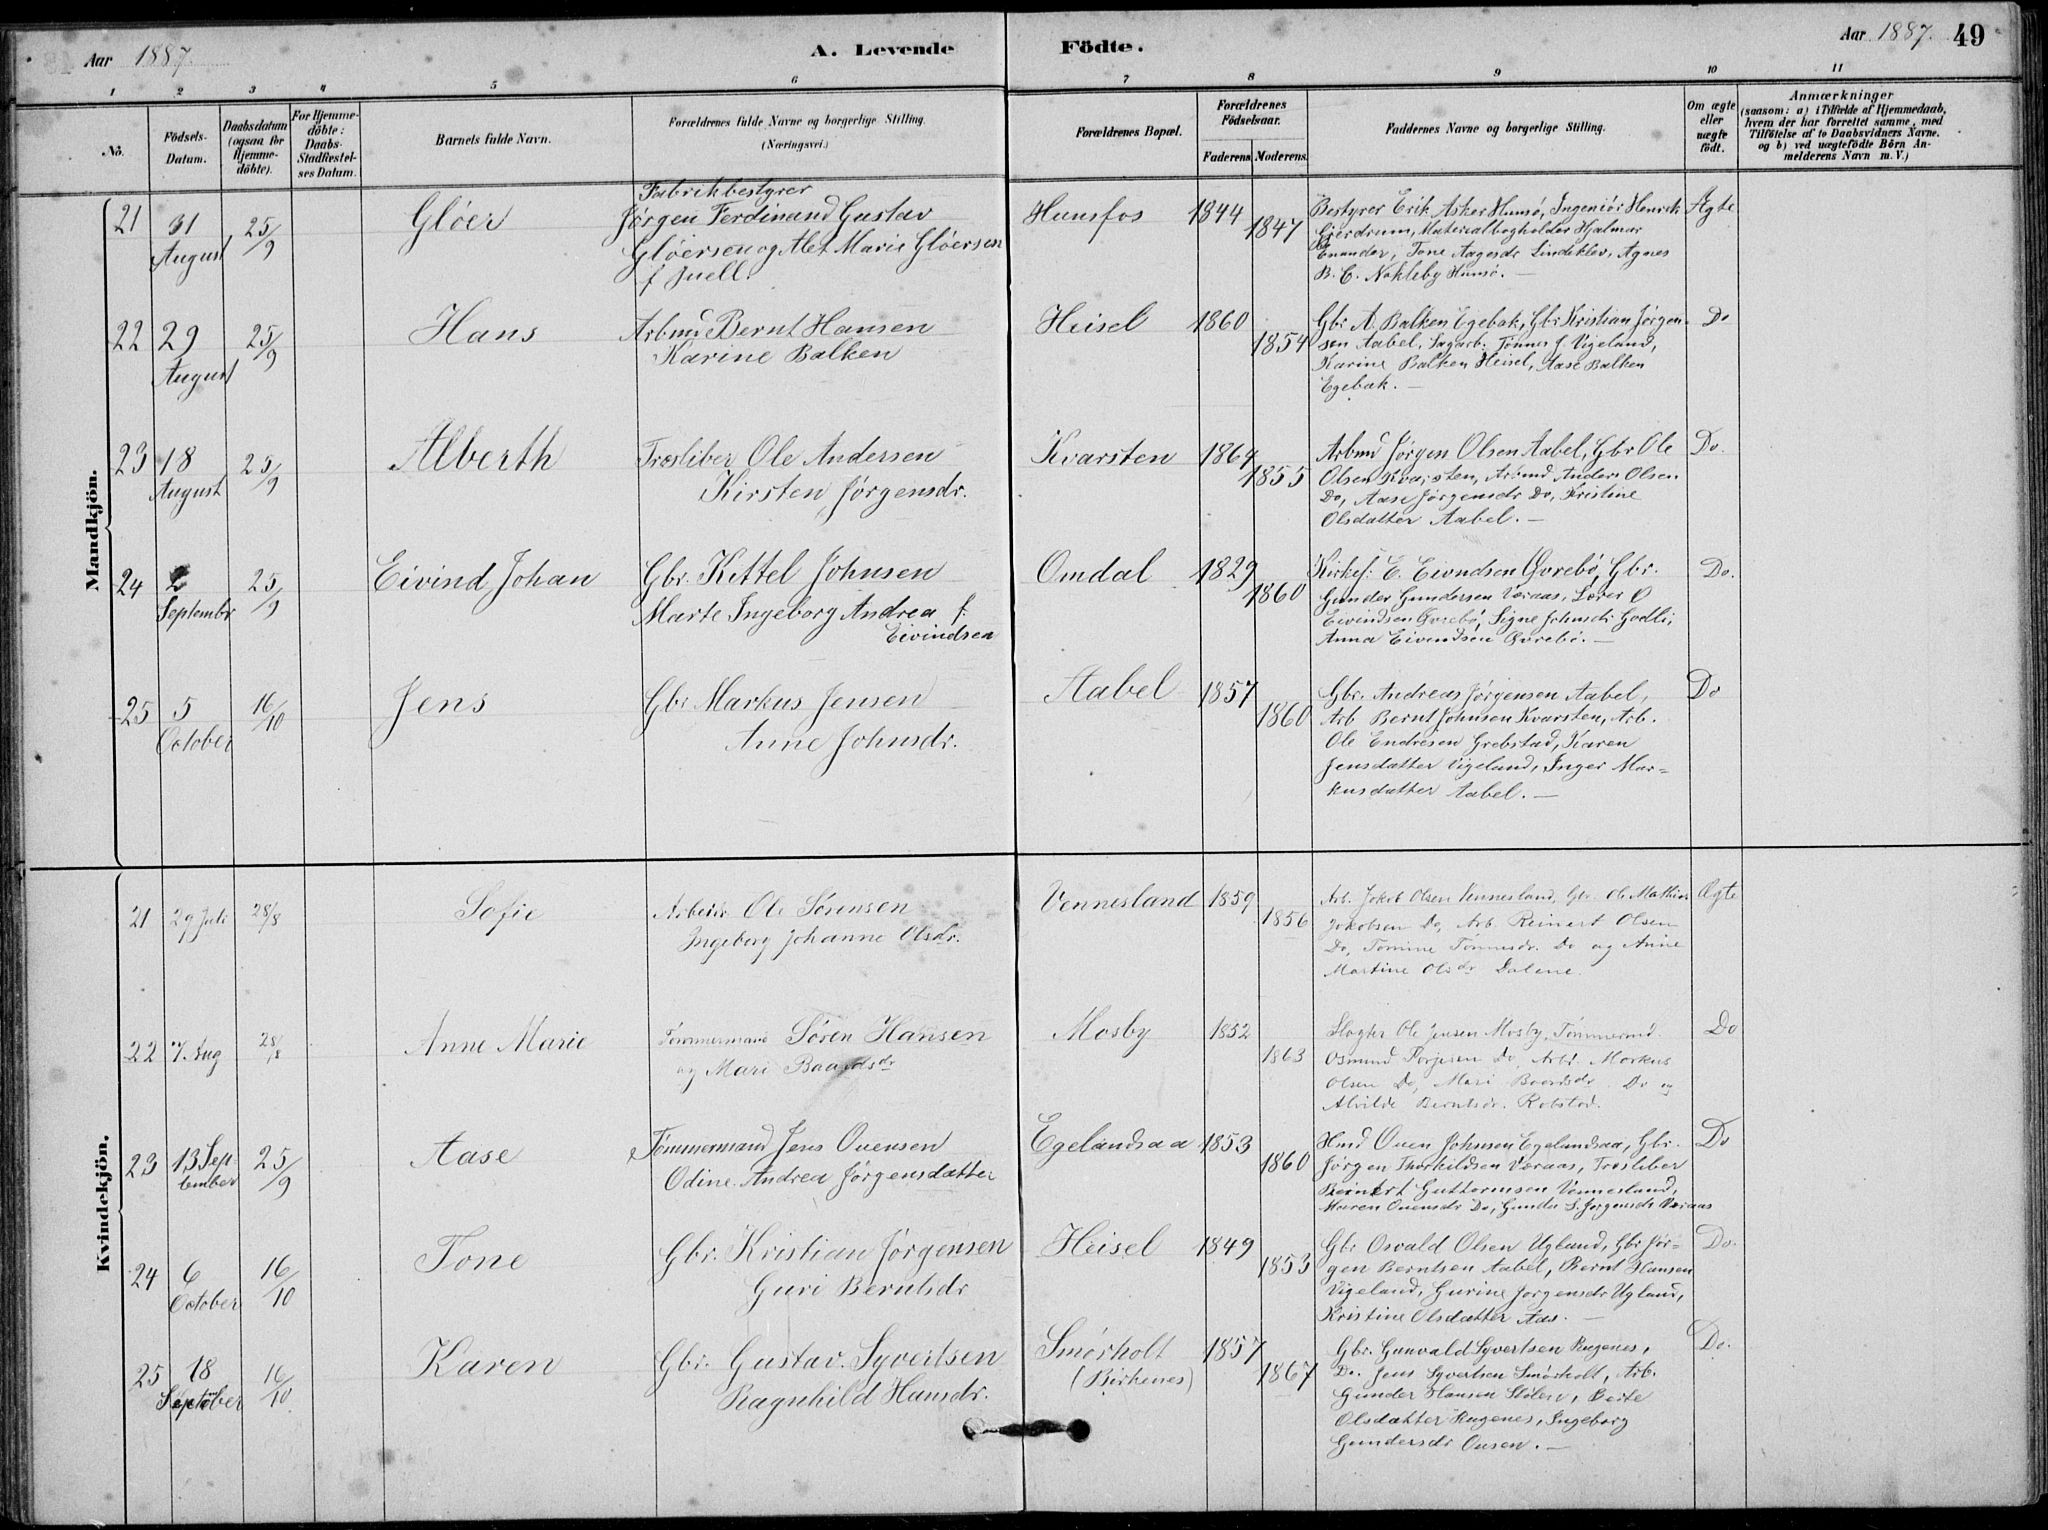 Aar 1887.
A. Levende Födte.
Aar 1887. 49
1 2 3 4 5 6 7 8 9 10 11
No.
Födsels-Datum.
Daabsdatum (ogsaa for Hjemmedöbte).
For Hjemmedöbte: Daabs-Stadfæstelses Datum.
Barnets fulde Navn.
Forældrenes fulde Navne og borgerlige Stilling. (Næringsvei.)
Forældrenes Bopæl.
Forældrenes Födselsaar.
Faderens Moderens
Faddernes Navne og borgerlige Stilling.
Om ægte eller uægte födt.
Anmærkninger
(saasom: a) i Tilfælde af Hjemmedaab,
hvem der har forrettet samme, med
Tilföielse af to Daabsvidners Navne.
og b) ved uægtefödte Börn An-
melderens Navn m. V.)
Mandkjön.
21 31 August 25/9 Gløer
Fabrikbestyrer
Jørgen Ferdinand Gustav
Gløersen og Alet Marie Gløersen
f Juell.
Hunsfos 1844 1847
Bestyrer Erik Asker Hunsö, Ingeniör Henrik
Gjerdrum, Materialbogholder Hjalmar
Enander, Tone Aagesdr Lindeklev, Agnes
B. C. Nokleby Hunsö. —
Ægte
22 29 August 25/9 Hans
Arbmd Bernt Hansen
Karine Balken
Heisel 1860 1854
Gbr A. Balken Egebak, Gbr Kristian Jørgen-
sen Aabel, Sagarb. Tønnes J. Vigeland,
Karine Balken Heisel, Aase Balken
Egebak. —
Do
23 18 August 25/9 Alberth
Træsliber Ole Andersen
Kirsten Jørgensdr.
Kvarsten 1864 1855
Arbmd Jørgen Olsen Aabel, Gbr Ole
Olsen Kvarsten, Arbmd Anders Olsen
Do, Aase Jørgensdr Do, Kristine
Olsdatter Aabel. —
Do.
24 2 Septembr 25/9 Eivind Johan
Gbr. Kittel Johnsen
Marte Ingeborg Andrea f.
Eivindsen
Omdal 1829 1860
Kirkes: E. Eivndsen Øvrebö, Gbr.
Gunder Gundersen Væraas, Lærer O
Eivindsen Øvrebö, Signe Johnsdr Godli,
Anna Eivendsen Øvrebö. —
Do.
25 5 October 16/10 Jens
Gbr Markus Jensen
Anne Johnsdr.
Aabel 1857 1860
Gbr. Andreas Jørgensen Aabel,
Arb Bernt Johnsen Kvarsten, Arb.
Ole Endresen Grebstad, Karen
Jensdatter Vigeland, Inger Mar-
kusdatter Aabel. —
Do
Kvindekjön.
21 29 Juli 28/8 Sofie
Arbeider Ole Sørensen
Ingeborg Johanne Olsdr.
Vennesland 1859 1856
Arb. Jakob Olsen Vennesland, Gbr. Ole Mathias
Jakobsen Do, Arb Reinert Olsen
Do, Tomine Tønnesdr. Do og Anne
Martine Olsdr Dalene.
Ægte
22 7. Aug 28/8 Anne Marie
Tømmermand Søren Hansen
og Mari Baardsdr
Mosby 1852 1863
Slagter Ole Jensen Mosby, Tömmermd.
Osmund Torjesen Do, Arbr. Markus
Olsen Do, Mari Baardsdr. Do og
Alvilde Berntsdr. Robstad.
Do
23 13 September 25/9 Aase
Tømmermand Jens Ouensen
Odine Andrea Jørgensdatter
Egelandsaa 1853 1860
Hmd Ouen Johnsen Egelandsaa, Gbr.
Jörgen Thorkildsen Væraas, Træsliber
Reinert Guttormsen Vennesland,
Maren Ouensdr Do, Gunda S. Jørgensdr Væraas
Do
24 6 October 16/10 Tone
Gbr. Kristian Jørgensen
Guri Berntsdr
Heisel 1849 1853
Gbr Osvald Olsen Ugland, Gbr Jør-
gen Berntsen Aabel, Bernt Hansen
Vigeland, Gurine Jorgensdr Ugland,
Kristine Olsdatter Aas. —
Do.
25 18 September 16/10 Karen
Gbr. Gustav. Syvertsen
Ragnhild Hansdr.
Smørholt (Birkenes) 1857 1867
Gbr. Gunvald Syvertsen Rugenes,
Do. Jens Syvertsen Smørholt, Arb.
Gunder Hansen Stölen, Berte
Olsdatter Rugenes, Ingeborg
Gundersdr Ousen. —
Do.